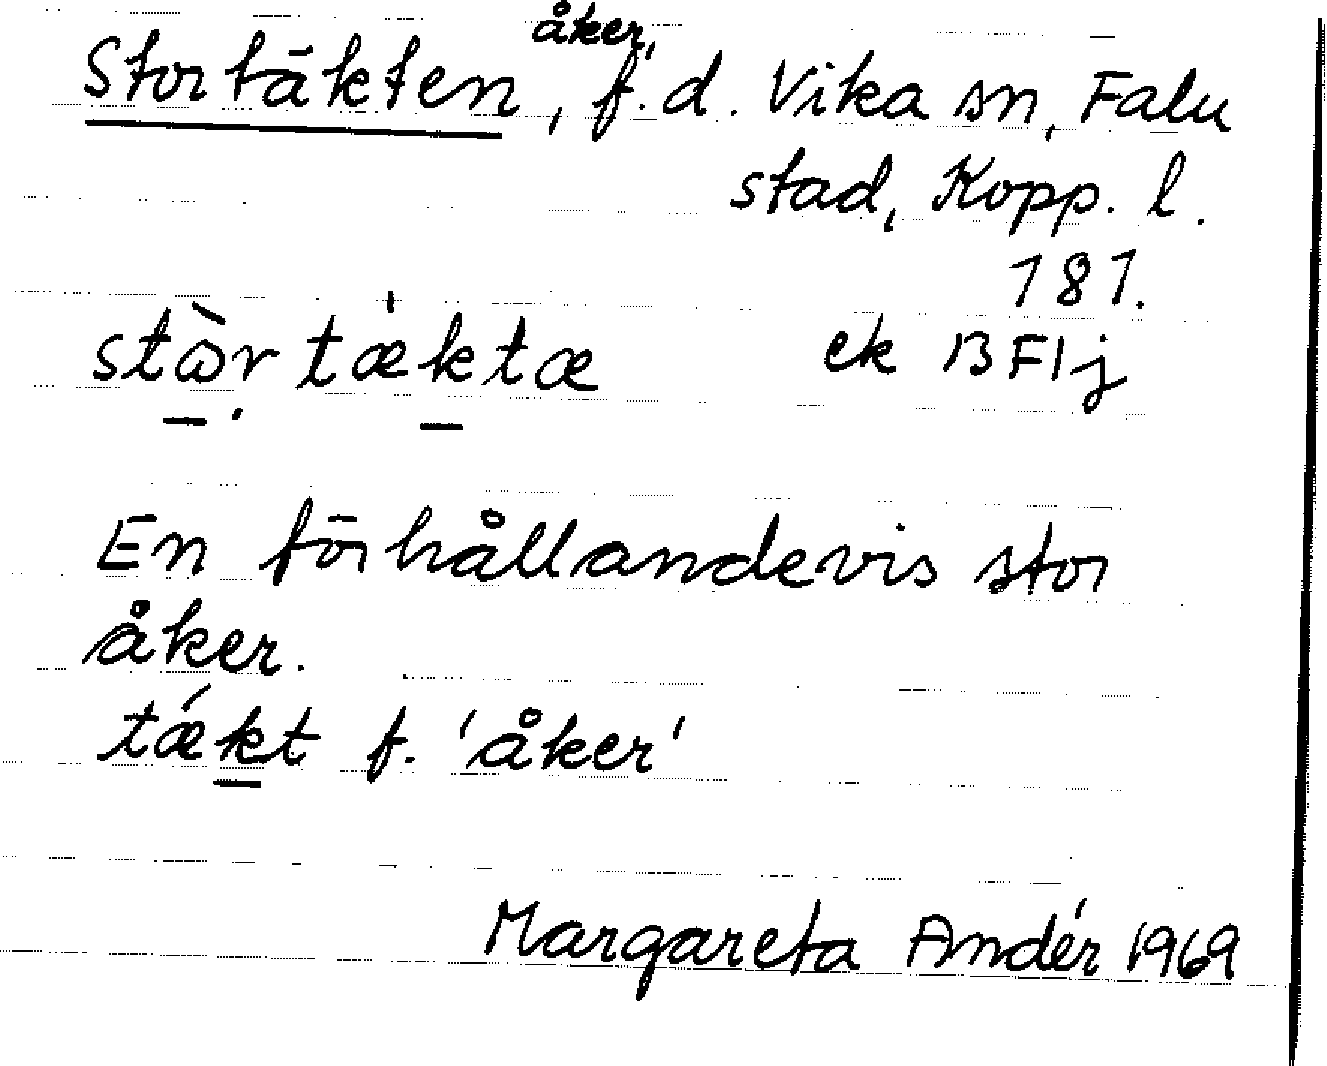 Stortäkten, åker, f.d. Vika sn, Falu
stad, Kopp. l.
181.
stɷ̀r tæ̍ktæ ek BFlj
En förhållandevis stor
åker.
tǽkt f. 'åker'
Margareta Andér 1969